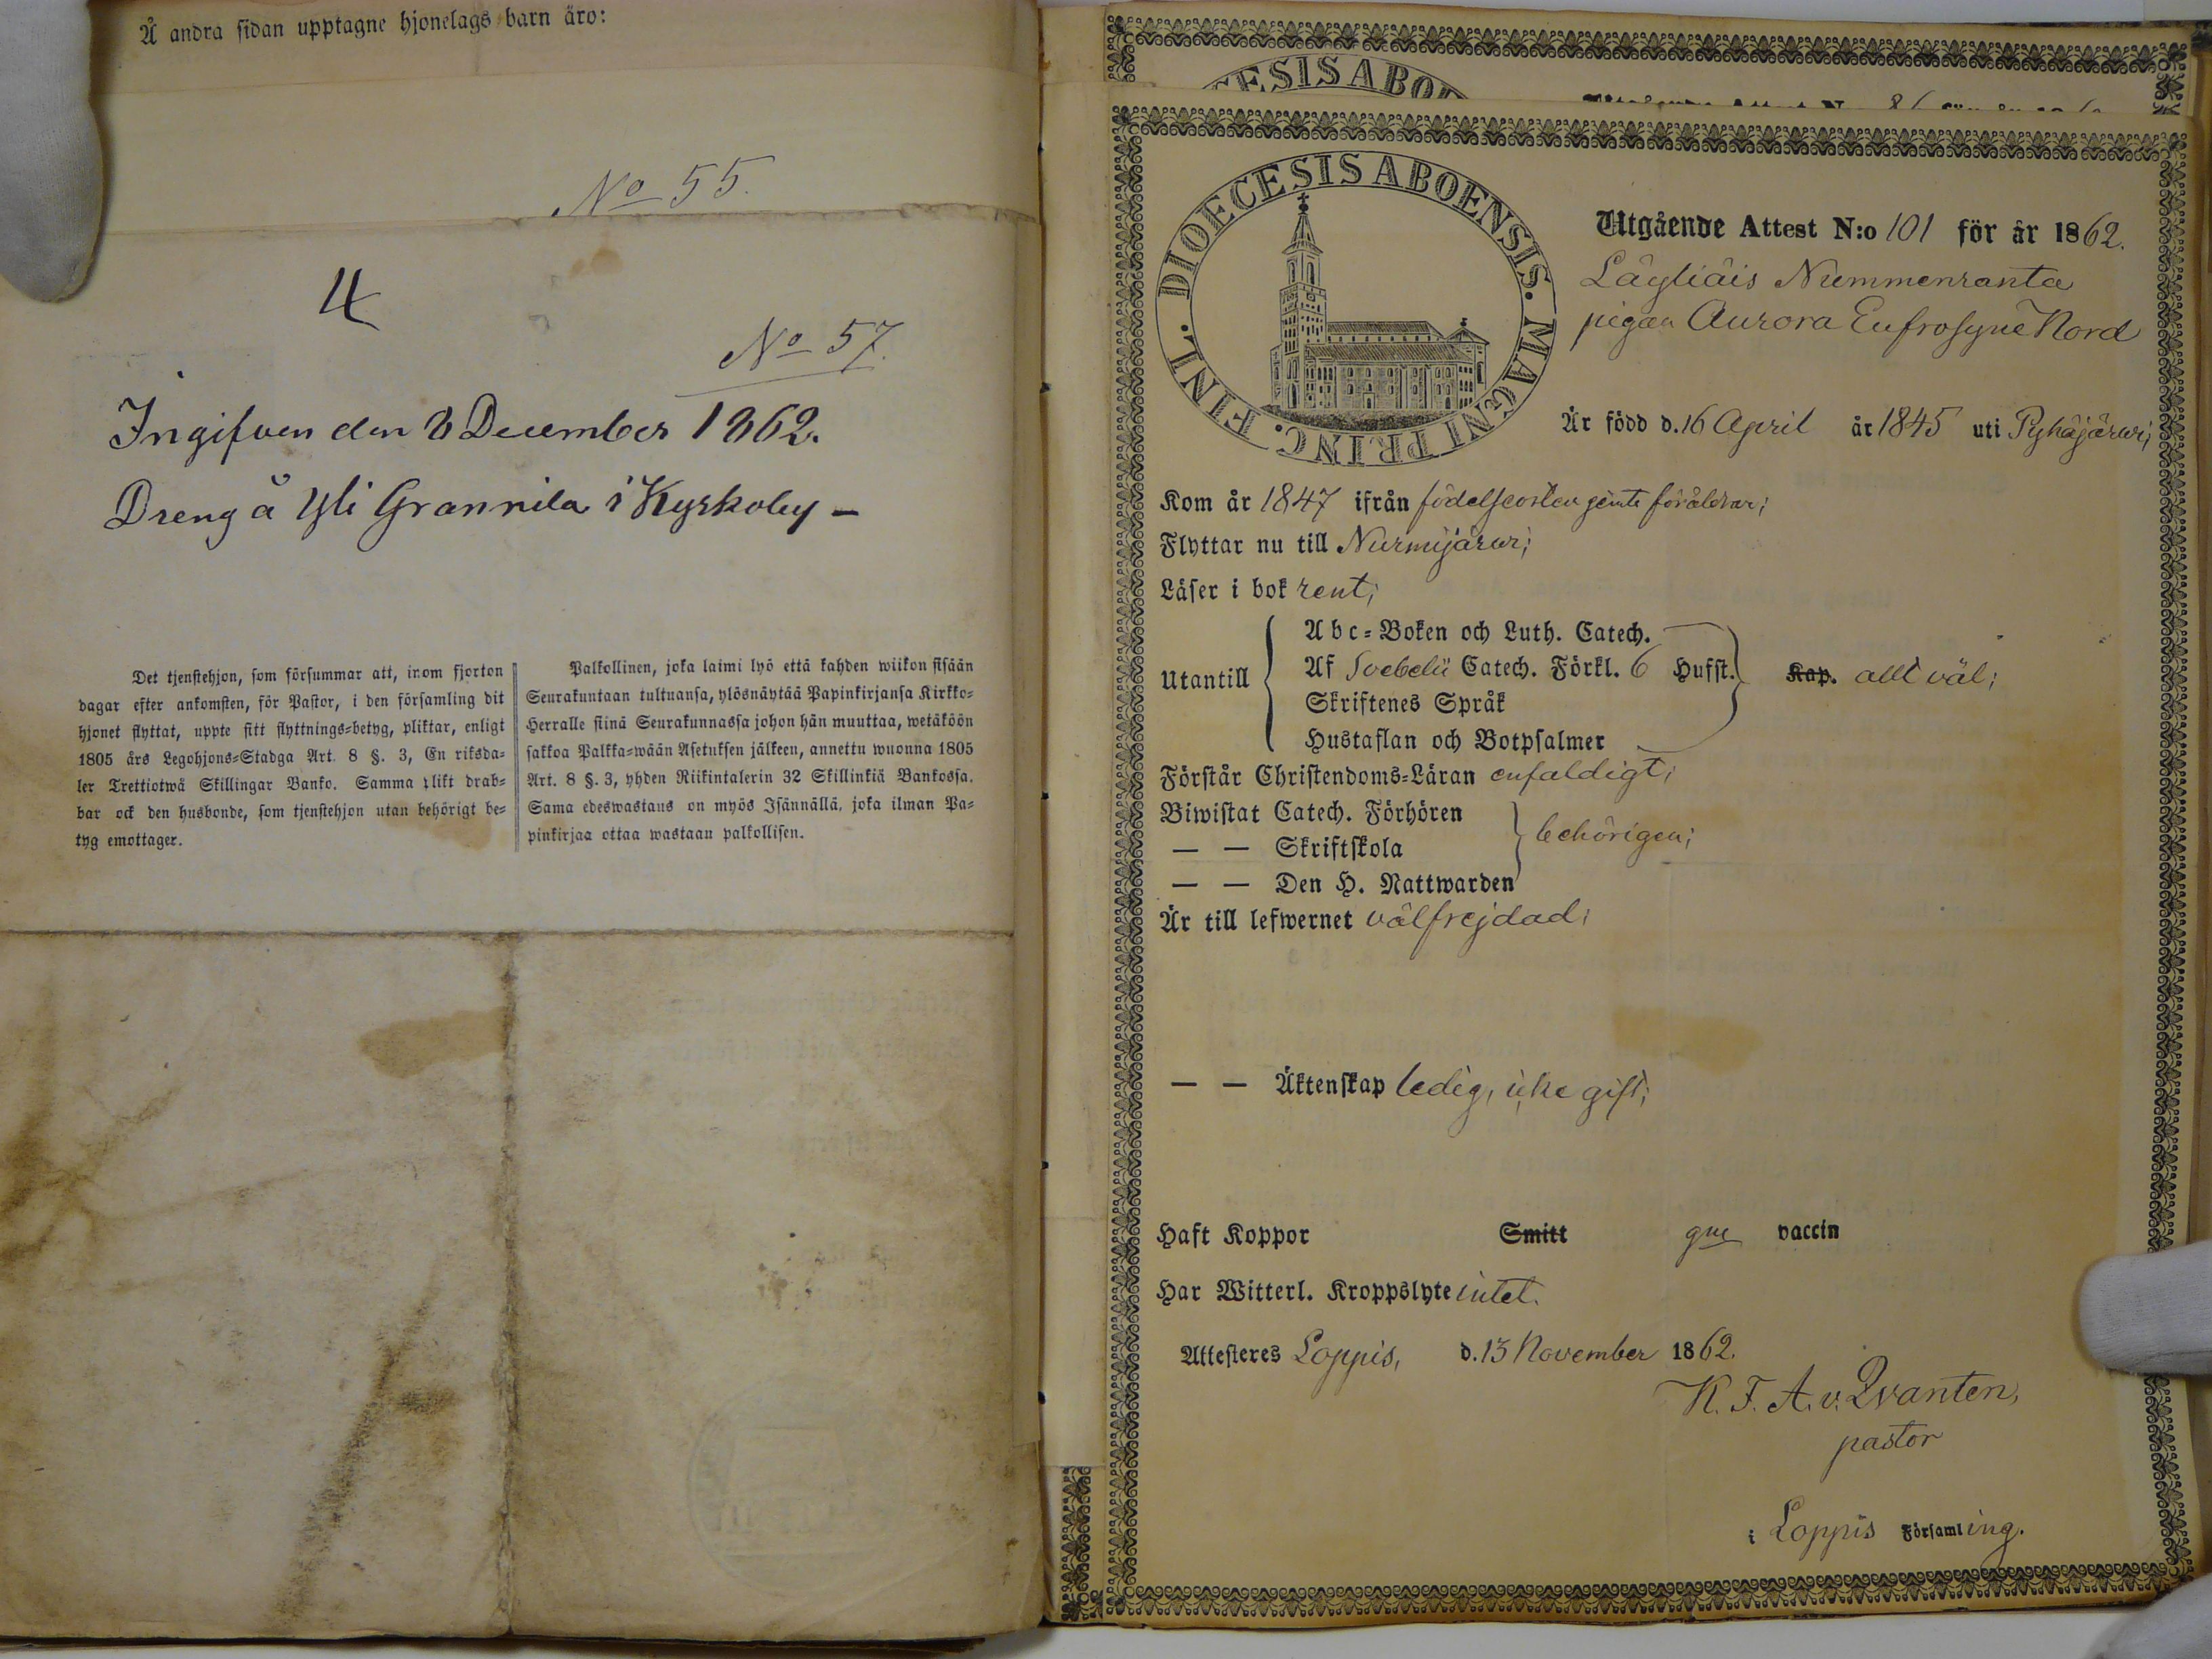 Å andra sidan upptagne hjonelags barn äro:
No 55.
4
No 57.
Ingifven den 8 December 1862.
Dreng å Yli Grannila i Kyrkoby –
Det tjenstehjon, som försummar att, inom fjorton
dagar efter ankomsten, för Pastor, i den församling dit
hjonet flyttat, uppte sitt flyttnings-betyg, pliktar, enligt
1805 års Legohjons-Stadga Art. 8 §. 3, En riksda-
ler Trettiotwå Skillingar Banko. Samma plikt drab-
bar ock den husbonde, som tjenstehjon utan behörigt be-
tyg emottager.
Palkollinen, joka laimi lyö että kahden wiikon sisään
Seurakuntaan tultuansa, ylösnäytää Papinkirjansa Kirkko-
Herralle siinä Seurakunnassa johon hän muuttaa, wetäköön
sakkoa Palkka-wään Asetuksen jälkeen, annettu wuonna 1805
Art. 8 §. 3, yhden Riikintalerin 32 Skillinkiä Bankossa.
Sama edeswastaus on myös Isännällä, joka ilman Pa-
pinkirjaa ottaa wastaan palkollisen.
DIOECESIS ABOENSIS. MAGNI PRINC. FINL.
Utgående Attest N:o 101 för år 1862.
Läyliäis Nummenranta
pigan Aurora Eufrosyne Nord
Är född d. 16 April år 1845 uti Pyhäjärwi;
Kom år 1847 ifrån födelseorten jemte föräldrar;
Flyttar nu till Nurmijärwi;
Läser i bok rent;
Utantill
Abc-Boken och Luth. Catech.
Af Svebelii Catech. Förkl. 6 Hufst.
Kap. allt väl;
Skriftenes Språk
Hustaflan och Botpsalmer
Förstår Christendoms-Läran enfaldigt;
Biwistat Catech. Förhören
— — Skriftskola
behörigen;
— — Den H. Nattwarden
Är till lefwernet välfrejdad;
— — Äktenskap ledig, icke gift;
Haft Koppor Smitt gne vaccin
Har Witterl. Kroppslyte intet.
Attesteres Loppis, d. 13 November 1862.
K. F. A. v. Qvanten,
pastor
i Loppis Församling.